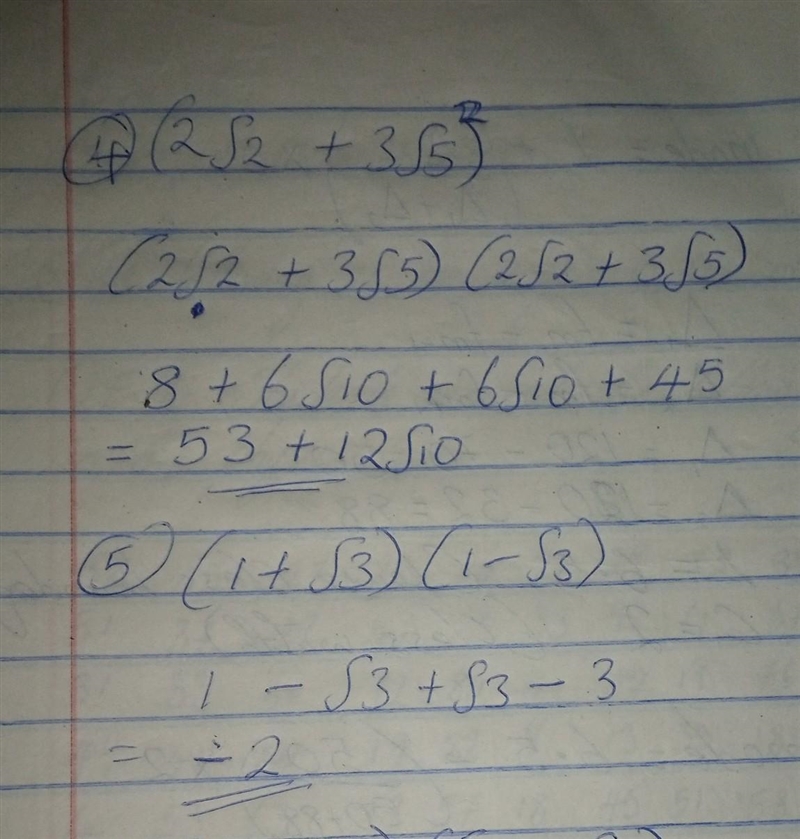 ④ (2√2 + 3√5)²
(2√2 + 3√5) (2√2 + 3√5)
8 + 6√10 + 6√10 + 45
= 53 + 12√10
⑤ (1 + √3) (1 - √3)
1 - √3 + √3 - 3
= -2